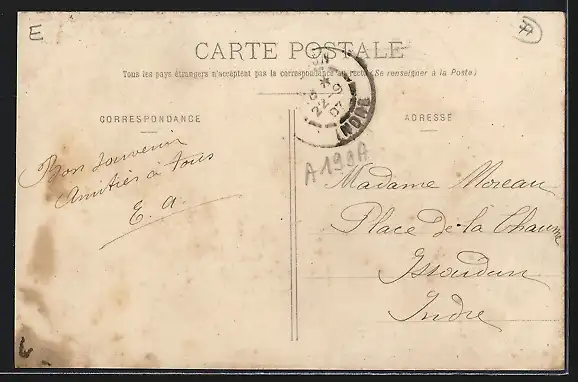 E
CARTE POSTALE
Tous les pays étrangers n'acceptent pas la correspondance au recto (Se renseigner à la Poste)
22-9
07
INDRE
CORRESPONDANCE
ADRESSE
A199A
Bon souvenir
Amitiés à tous
E. A.
Madame Moreau
Place de la Chaume
Issoudun
Indre